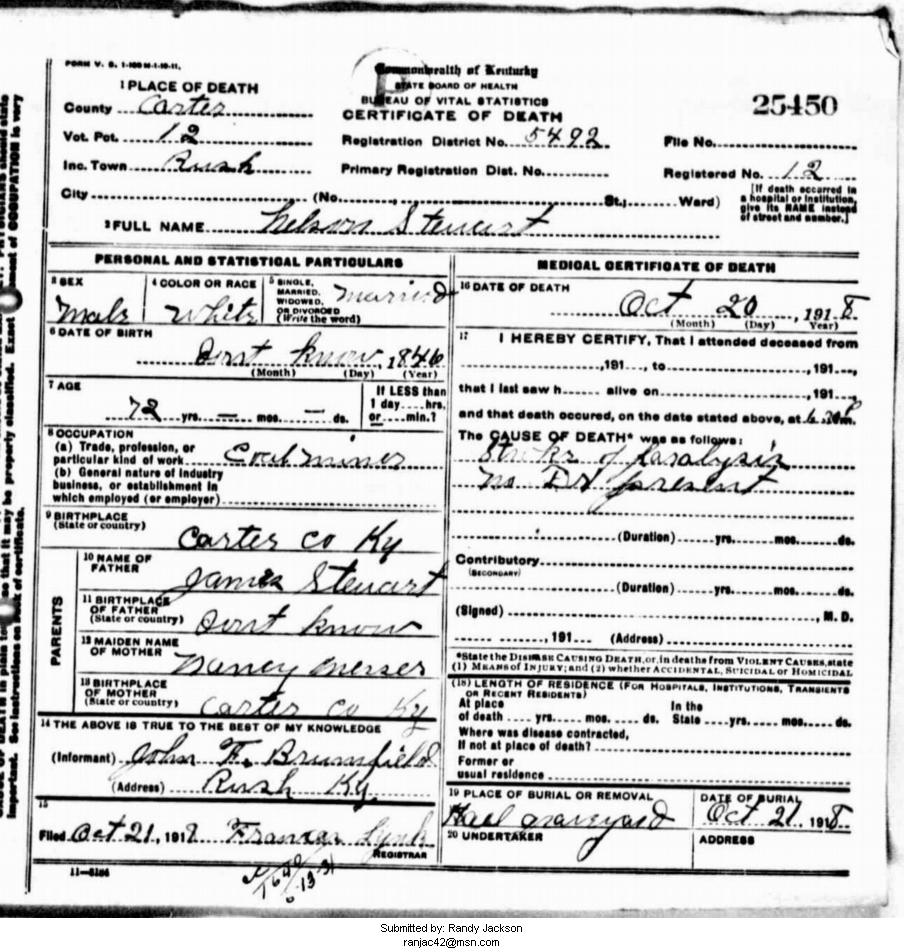 FORM V. S. 1-100 M-1-10-11.
Commonwealth of Kentucky
STATE BOARD OF HEALTH
BUREAU OF VITAL STATISTICS
CERTIFICATE OF DEATH
25450
1 PLACE OF DEATH
County Carter
Vot. Pct. 12
Inc. Town Rush
City (No. St.; Ward)
Registration District No. 5492
Primary Registration Dist. No.
File No.
Registered No. 12
[If death occurred in
a hospital or institution,
give its NAME instead
of street and number.]
2 FULL NAME Nelson Stewart
PERSONAL AND STATISTICAL PARTICULARS
3 SEX
Male
4 COLOR OR RACE
White
5 SINGLE,
MARRIED,
WIDOWED,
OR DIVORCED
(Write the word)
Married
6 DATE OF BIRTH
dont know, 1846
(Month) (Day) (Year)
7 AGE
72 yrs. — mos. — ds.
If LESS than
1 day.....hrs.
or.....min.?
8 OCCUPATION
(a) Trade, profession, or
particular kind of work Coal miner
(b) General nature of industry
business, or establishment in
which employed (or employer)
9 BIRTHPLACE
(State or country)
Carter co Ky
PARENTS
10 NAME OF
FATHER
James Stewart
11 BIRTHPLACE
OF FATHER
(State or country)
dont know
12 MAIDEN NAME
OF MOTHER
Nancy
13 BIRTHPLACE
OF MOTHER
(State or country)
Carter co Ky
14 THE ABOVE IS TRUE TO THE BEST OF MY KNOWLEDGE
(Informant) John F. Brumfield
(Address) Rush Ky.
15
Filed Oct 21, 1918 Lynk
REGISTRAR
11—5184
MEDICAL CERTIFICATE OF DEATH
16 DATE OF DEATH
Oct 20, 1918
(Month) (Day) Year)
17
I HEREBY CERTIFY, That I attended deceased from
, 191..., to , 191...,
that I last saw h alive on , 191...,
and that death occured, on the date stated above, at 6.30 P m.
The CAUSE OF DEATH* was as follows:
Stroke of Paralysis
no Dr present
(Duration) yrs. mos. ds.
Contributory
(SECONDARY)
(Duration) yrs. mos. ds.
(Signed) , M. D.
, 191 (Address)
*State the DISEASE CAUSING DEATH, or, in deaths from VIOLENT CAUSES, state
(1) MEANS OF INJURY; and (2) whether ACCIDENTAL, SUICIDAL or HOMICIDAL
(18) LENGTH OF RESIDENCE (FOR HOSPITALS, INSTITUTIONS, TRANSIENTS
OR RECENT RESIDENTS)
At place In the
of death yrs. mos. ds. State yrs. mos. ds.
Where was disease contracted,
If not at place of death?
Former or
usual residence
19 PLACE OF BURIAL OR REMOVAL
graveyard
DATE OF BURIAL
Oct 21, 1918
20 UNDERTAKER
ADDRESS
Submitted by: Randy Jackson
ranjac42@msn.com